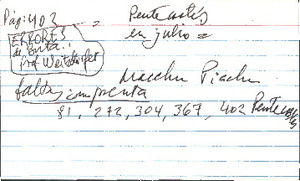 Pág: 402 =
Pentecostés
en julio =
ERRORES
de Imprenta..
Prof Weitzdorfer
Macchu Picchu
faltas imprenta
81, 272, 304, 367, 402 Pentecostés